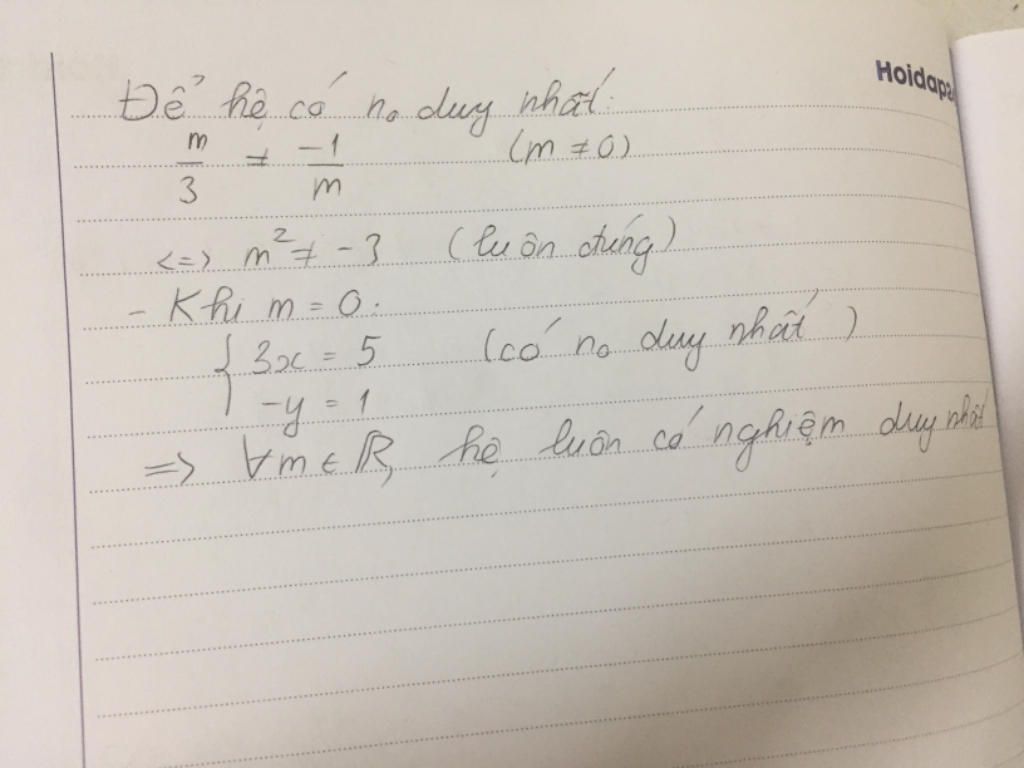 Hoidap
Để hệ có n₀ duy nhất:
m/3 ≠ -1/m (m ≠ 0)
<=> m² ≠ -3 (luôn đúng)
- Khi m = 0:
{ 3x = 5 (có n₀ duy nhất)
-y = 1
=> ∀m ∈ ℝ, hệ luôn có nghiệm duy nhất